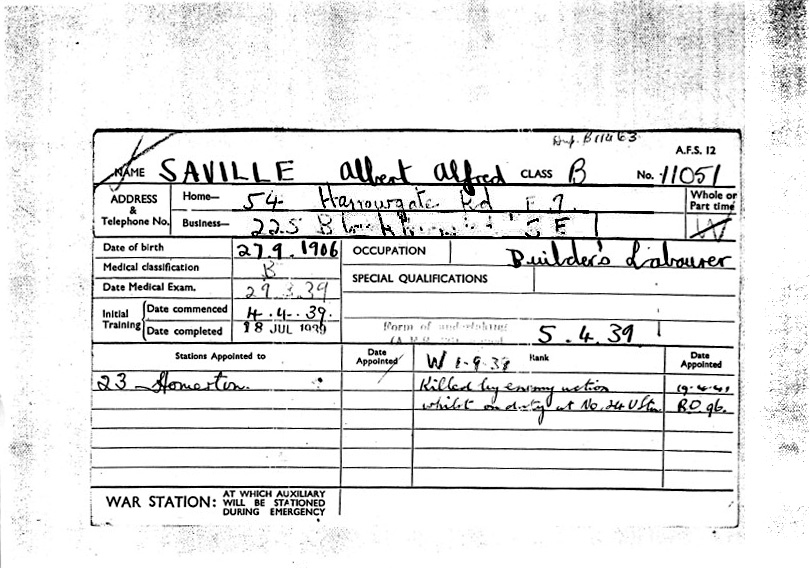 Dup. B11463
A.F.S. 12
NAME SAVILLE Albert Alfred CLASS B No. 11051
ADDRESS & Telephone No.
Home— 54 Harrowgate Rd E.9.
Business— 225 S E 1
Whole or Part time W
Date of birth 27.9.1906
OCCUPATION Builder's Labourer
Medical classification B
SPECIAL QUALIFICATIONS
Date Medical Exam. 29.3.39
Initial Training
Date commenced 4.4.39.
Date completed 18 JUL 1939
Form of undertaking 5.4.39
Stations Appointed to
Date Appointed
W 1-9-39 Rank
Date Appointed
23 Homerton
Killed by enemy action 19.4.41
whilst on duty at No. 24 U Stn R.O. 96.
WAR STATION: AT WHICH AUXILIARY
WILL BE STATIONED
DURING EMERGENCY